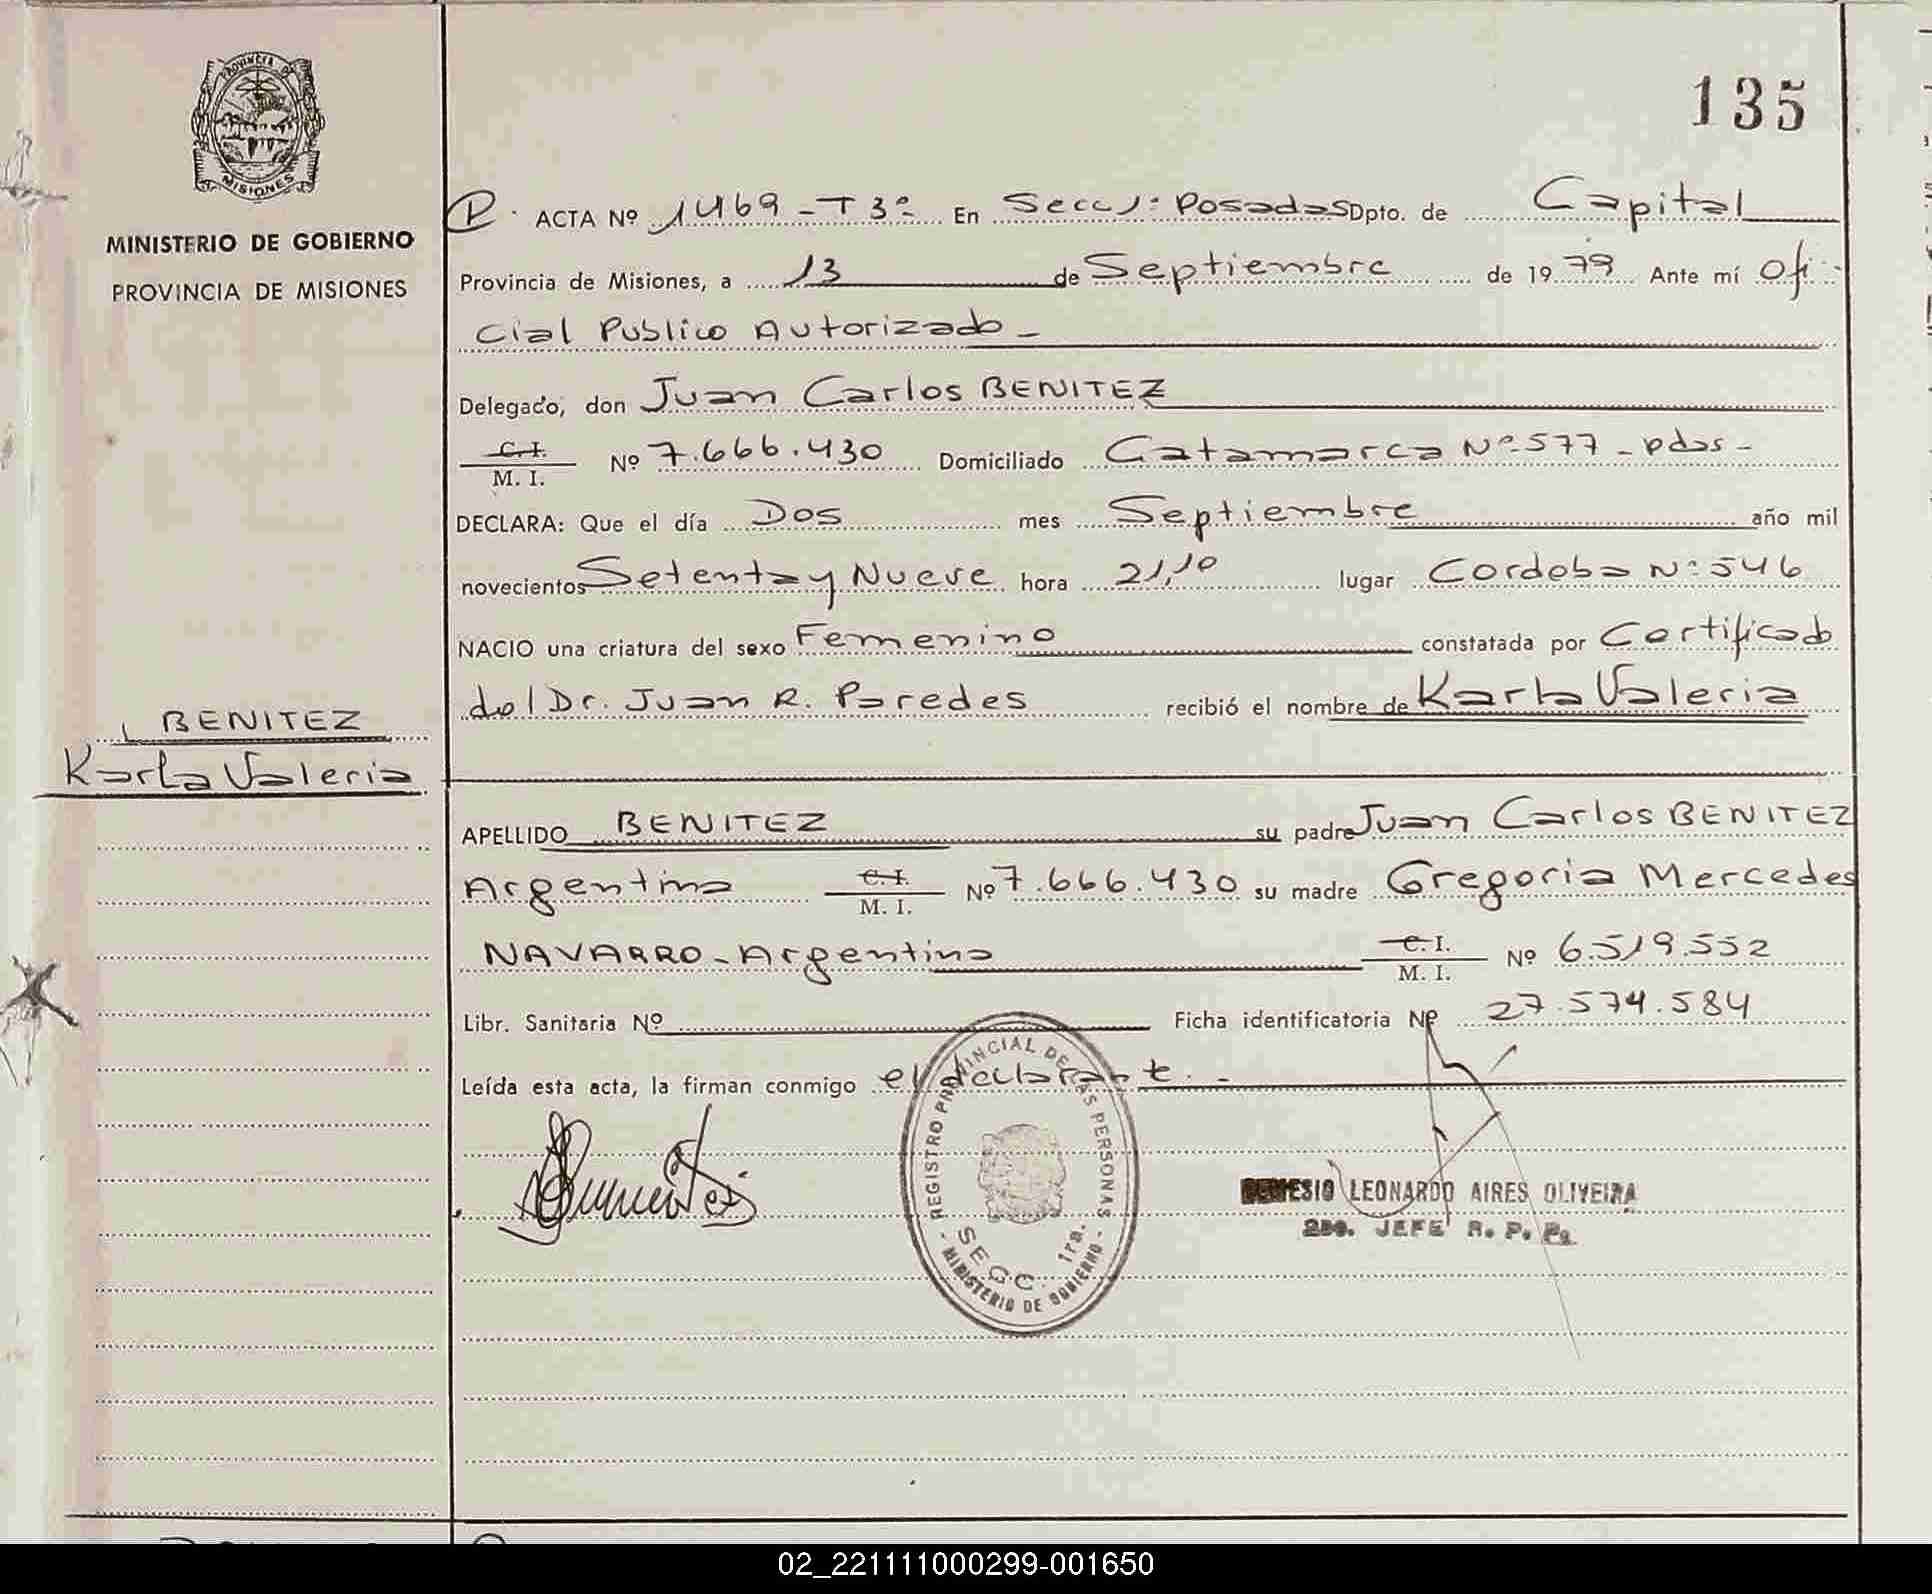 135
PROVINCIA DE
MISIONES
MINISTERIO DE GOBIERNO
PROVINCIA DE MISIONES
BENITEZ
Karla Valeria
P. ACTA Nº 1469 - T 3º En Secc 1ª Posadas Dpto. de Capital
Provincia de Misiones, a 13 de Septiembre de 1979 Ante mí Ofi-
cial Publico Autorizado -
Delegado, don Juan Carlos BENITEZ
C.I. M. I. Nº 7.666.430 Domiciliado Catamarca Nº 577 - pdas -
DECLARA: Que el día Dos mes Septiembre año mil
novecientos Setenta y Nueve hora 21,10 lugar Cordoba Nº 546
NACIO una criatura del sexo Femenino constatada por Certificado
del Dr. Juan R. Paredes recibió el nombre de Karla Valeria
APELLIDO BENITEZ su padre Juan Carlos BENITEZ
Argentino C.I. M. I. Nº 7.666.430 su madre Gregoria Mercedes
NAVARRO - Argentina C.I. M. I. Nº 6.519.552
Libr. Sanitaria Nº Ficha identificatoria Nº 27.574.584
Leída esta acta, la firman conmigo el declarante. -
REGISTRO PROVINCIAL DE LAS PERSONAS
SEGC. 1ra.
- MINISTERIO DE GOBIERNO -
LEONARDO AIRES OLIVEIRA
2do. JEFE R. P. Ps.
02_221111000299-001650